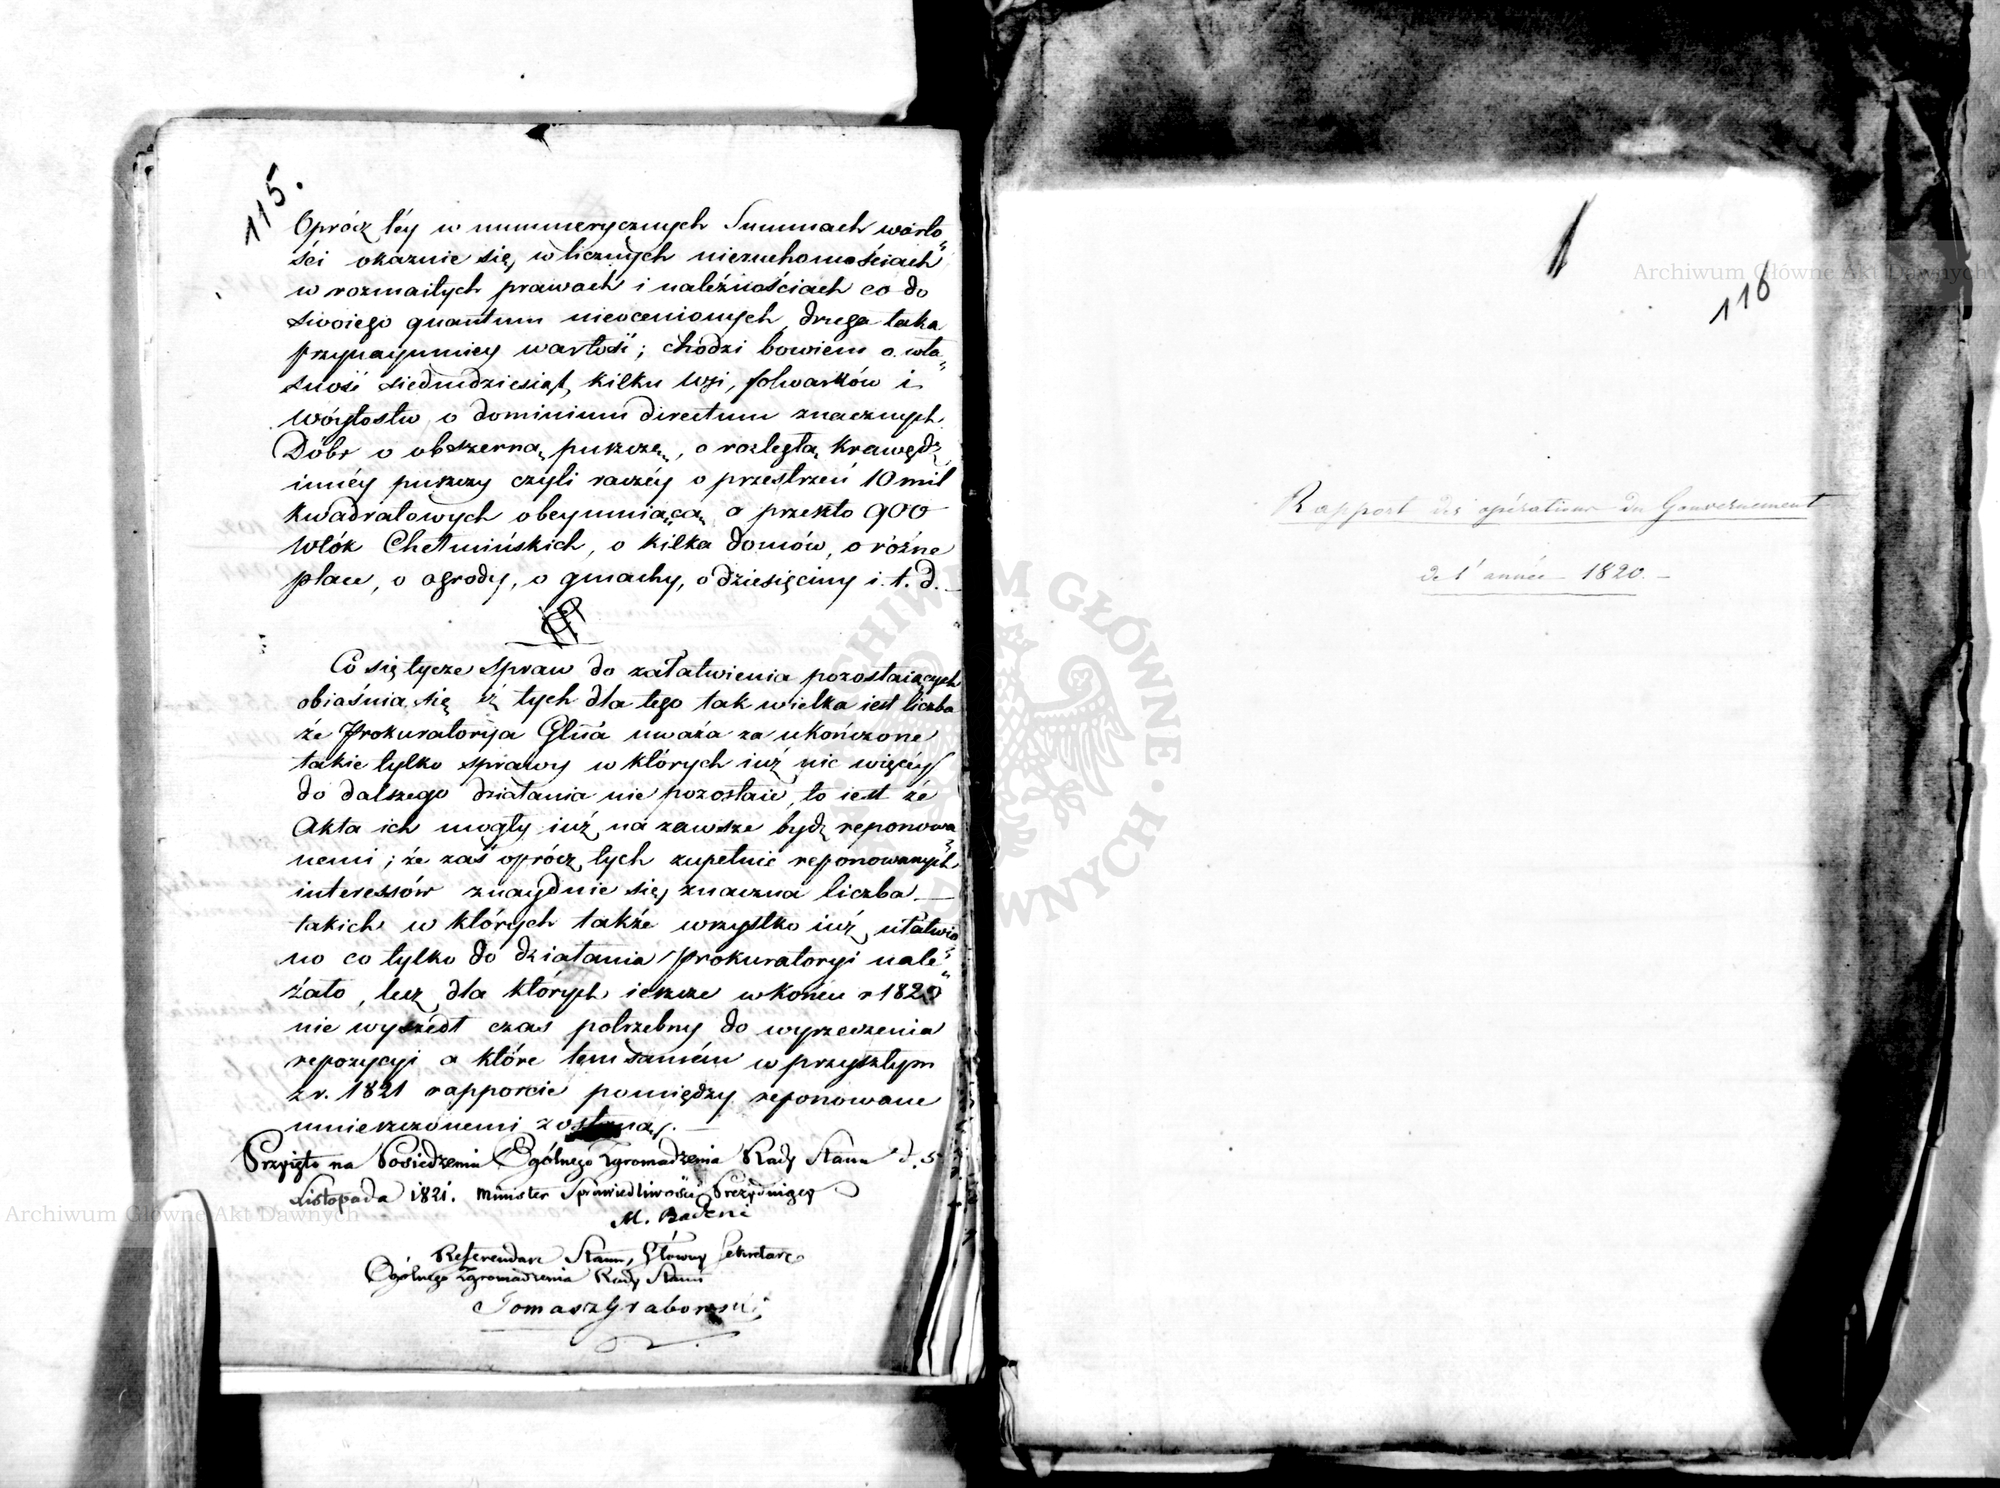 115.
Oprócz téy w nummerycznych Summach warto„
ści okaznie się, w licznych nieruchomościach
w rozmaitych prawach i należnościach co do
swoiego quantum nieocenionych, druga taka
przynaymniey wartość; chodzi bowiem o wła„
sność siedmdziesiąt kilku wsi, folwarków i
Wóytostw, o dominium directum znacznych
Dóbr o obszerną puszczę, o rozległą krawędź
innéy puszczy czyli raczéy o przestrzeń 10 mil
kwadratowych obeymuiącą o przeszło 900
Włók Chełmińskich, o kilka domów, o różne
place, o ogrody, o gmachy, o dziesięciny i. t. d.
Co się tycze spraw do załatwienia pozostaiących
obiaśnia się iż tych dla tego tak wielka iest liczba
że Prokuratorya Glna uważa za ukończone
takie tylko sprawy w których iuż nic więcéy
do dalszego działania nie pozostaie, to iest że
Akta ich mogły iuż na zawsze bydź reponowa„
nemi; że zaś oprócz tych zupełnie reponowanych
interessów znayduie się znaczna liczba
takich w których także wszystko iuż ułatwio„
no co tylko do działania Prokuratoryi nale„
żało, lecz dla których ieszcze w końcu r 1820
nie wyszedł czas potrzebny do wyrzeczenia
repozycyi a które tem samém w przyszłym
z r. 1821 rapporcie pomiędzy reponowane
umieszczonemi zostaną.
Przyięto na Posiedzeniu Ogólnego Zgromadzenia Rady Stanu d. 5
Listopada 1821. Minister Sprawiedliwości Prezyduiący
M. Badeni
Referendarz Stanu, Główny Sekretarz
Ogólnego Zgromadzenia Rady Stanu
Tomasz Grabowski
116
Rapport des opérations du Gouvernement
de l'année 1820.
Archiwum Główne Akt Dawnych
Archiwum Główne Akt Dawnych
ARCHIWUM GŁÓWNE AKT DAWNYCH